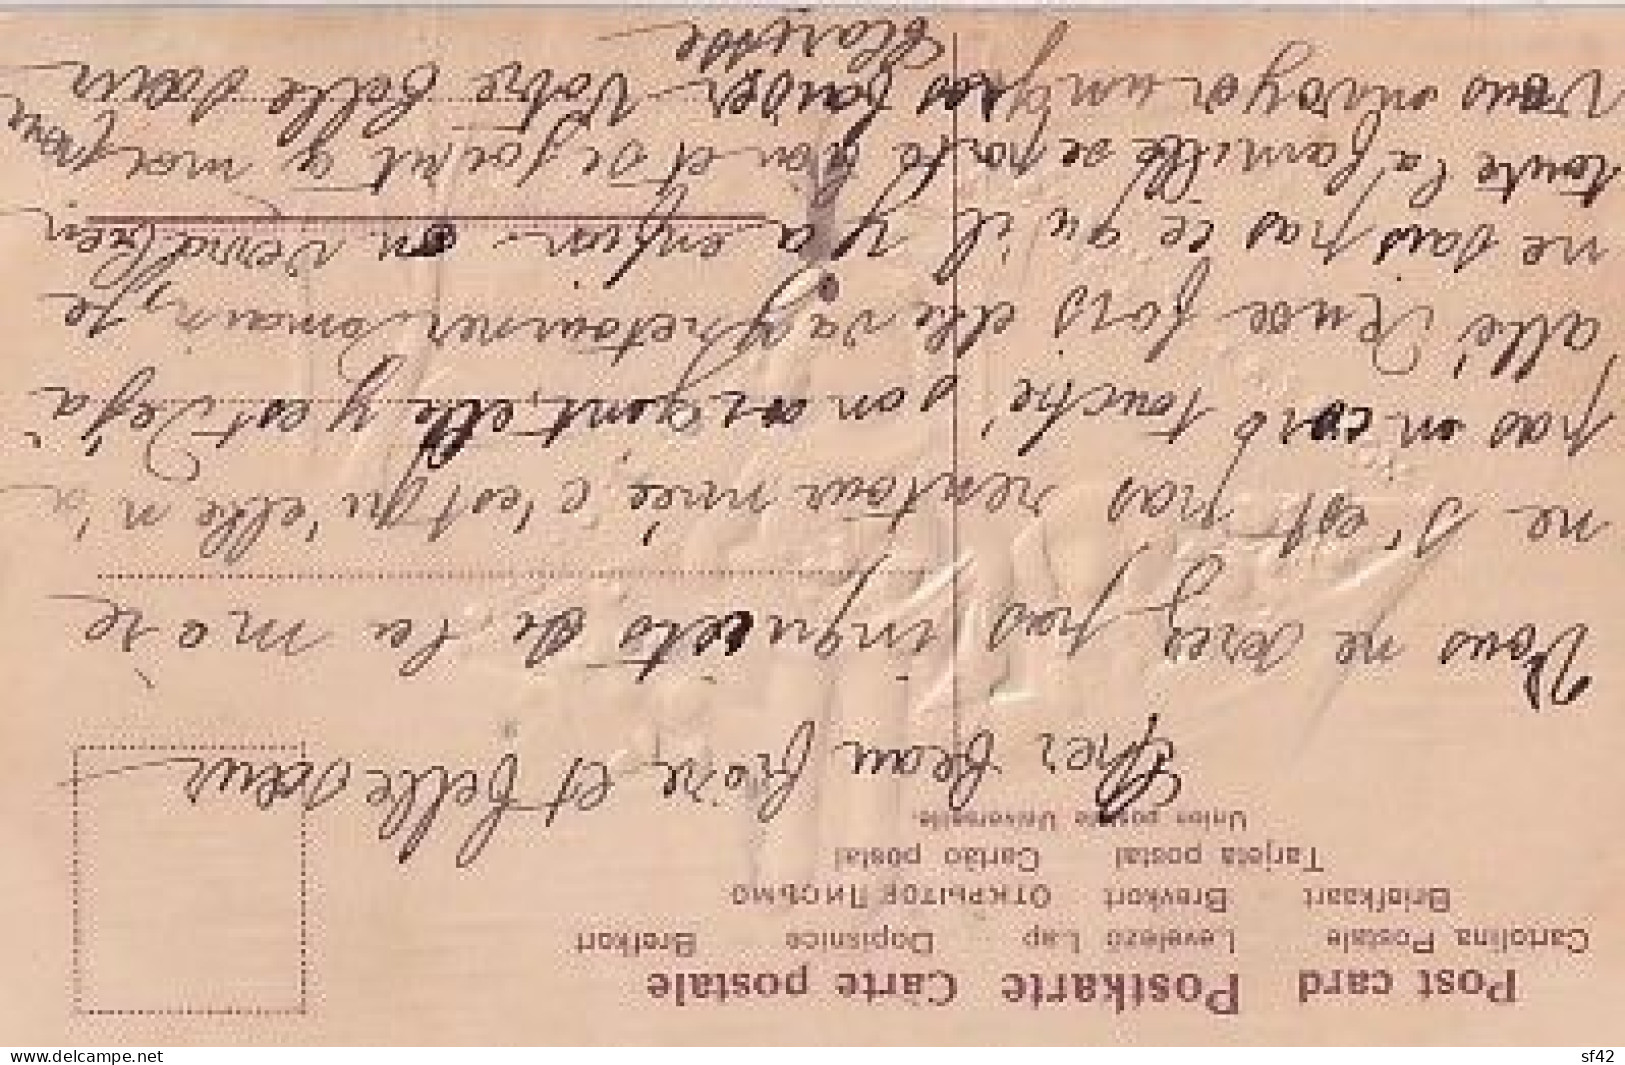 Post card Postkarte Carte postale
Cartolina Postale Levelező Lap Dopisnice Brefkort
Briefkaart Brevkort ОТКРЫТОЕ ПИСЬМО
Tarjeta postal Cartão postal
Union postale Universelle.
Cher beau frère et belle sœur
Vous ne serez pas inquiets de ta mère
ne s'est pas rentourneé, c'est qu'elle n'a
pas encore touché son argent, elle y est Déja
allé Deuse fois elle va y retourner Domain, je
ne sais pas ce qu'il y a enfien on verra bien
toute la famille se porte bon et se joint a moi pour
vous envoyer un gros baiser Votre belle sœur
delcampe.net
sf42